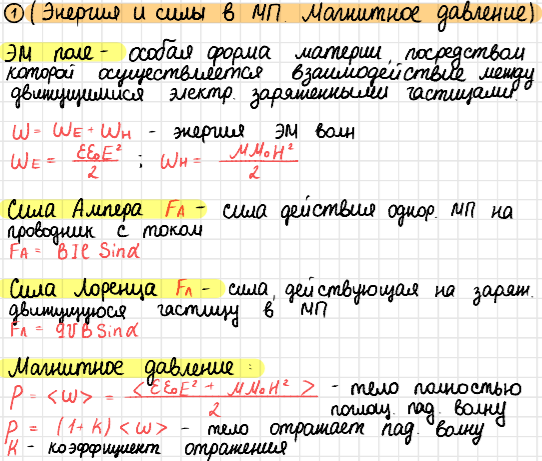 ① (Энергия и силы в МП. Магнитное давление)
ЭМ поле - особая форма материи, посредством
которой осуществляется взаимодействие между
движущимися электр. заряженными частицами.
W = WE + WH - энергия ЭМ волн
WE = εε₀E²/2 ; WH = μμ₀H²/2
Сила Ампера FA - сила действия однор. МП на
проводник с током
FA = BIl Sinα
Сила Лоренца Fл - сила, действующая на заряж.
движущуюся частицу в МП
Fл = qVB Sinα
Магнитное давление:
P = <w> = <εε₀E² + μμ₀H²>/2 - тело полностью
поглощ. пад. волну
P = (1+K) <w> - тело отражает пад. волну
K - коэффициент отражения